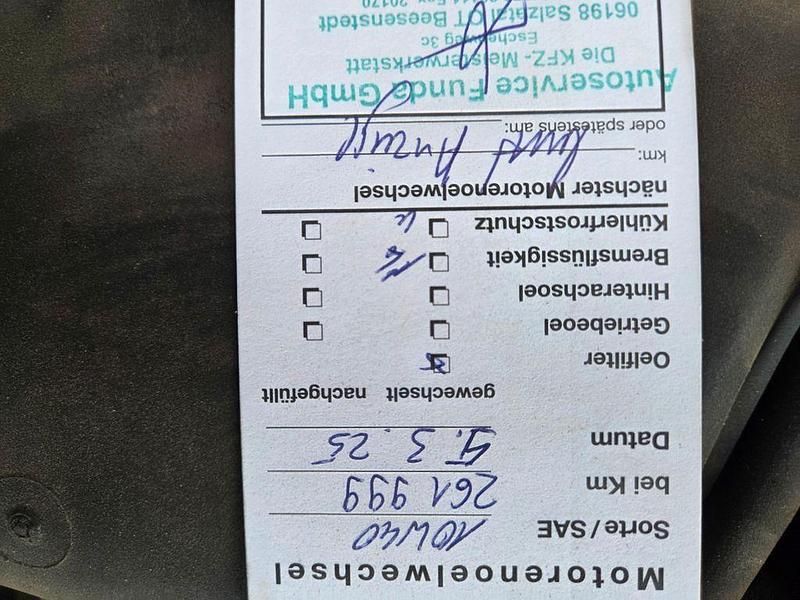 Motorenoelwechsel
Sorte/SAE 10W40
bei Km 261 999
Datum 5. 3. 25
gewechselt nachgefüllt
Oelfilter
Getriebeoel
Hinterachsoel
Bremsflüssigkeit
Kühlerfrostschutz
nächster Motorenoelwechsel
km: laut Anzeige
oder spätestens am:
Autoservice Funda GmbH
Die KFZ- Meisterwerkstatt
Eschenweg 3c
06198 Salzatal OT Beesenstedt